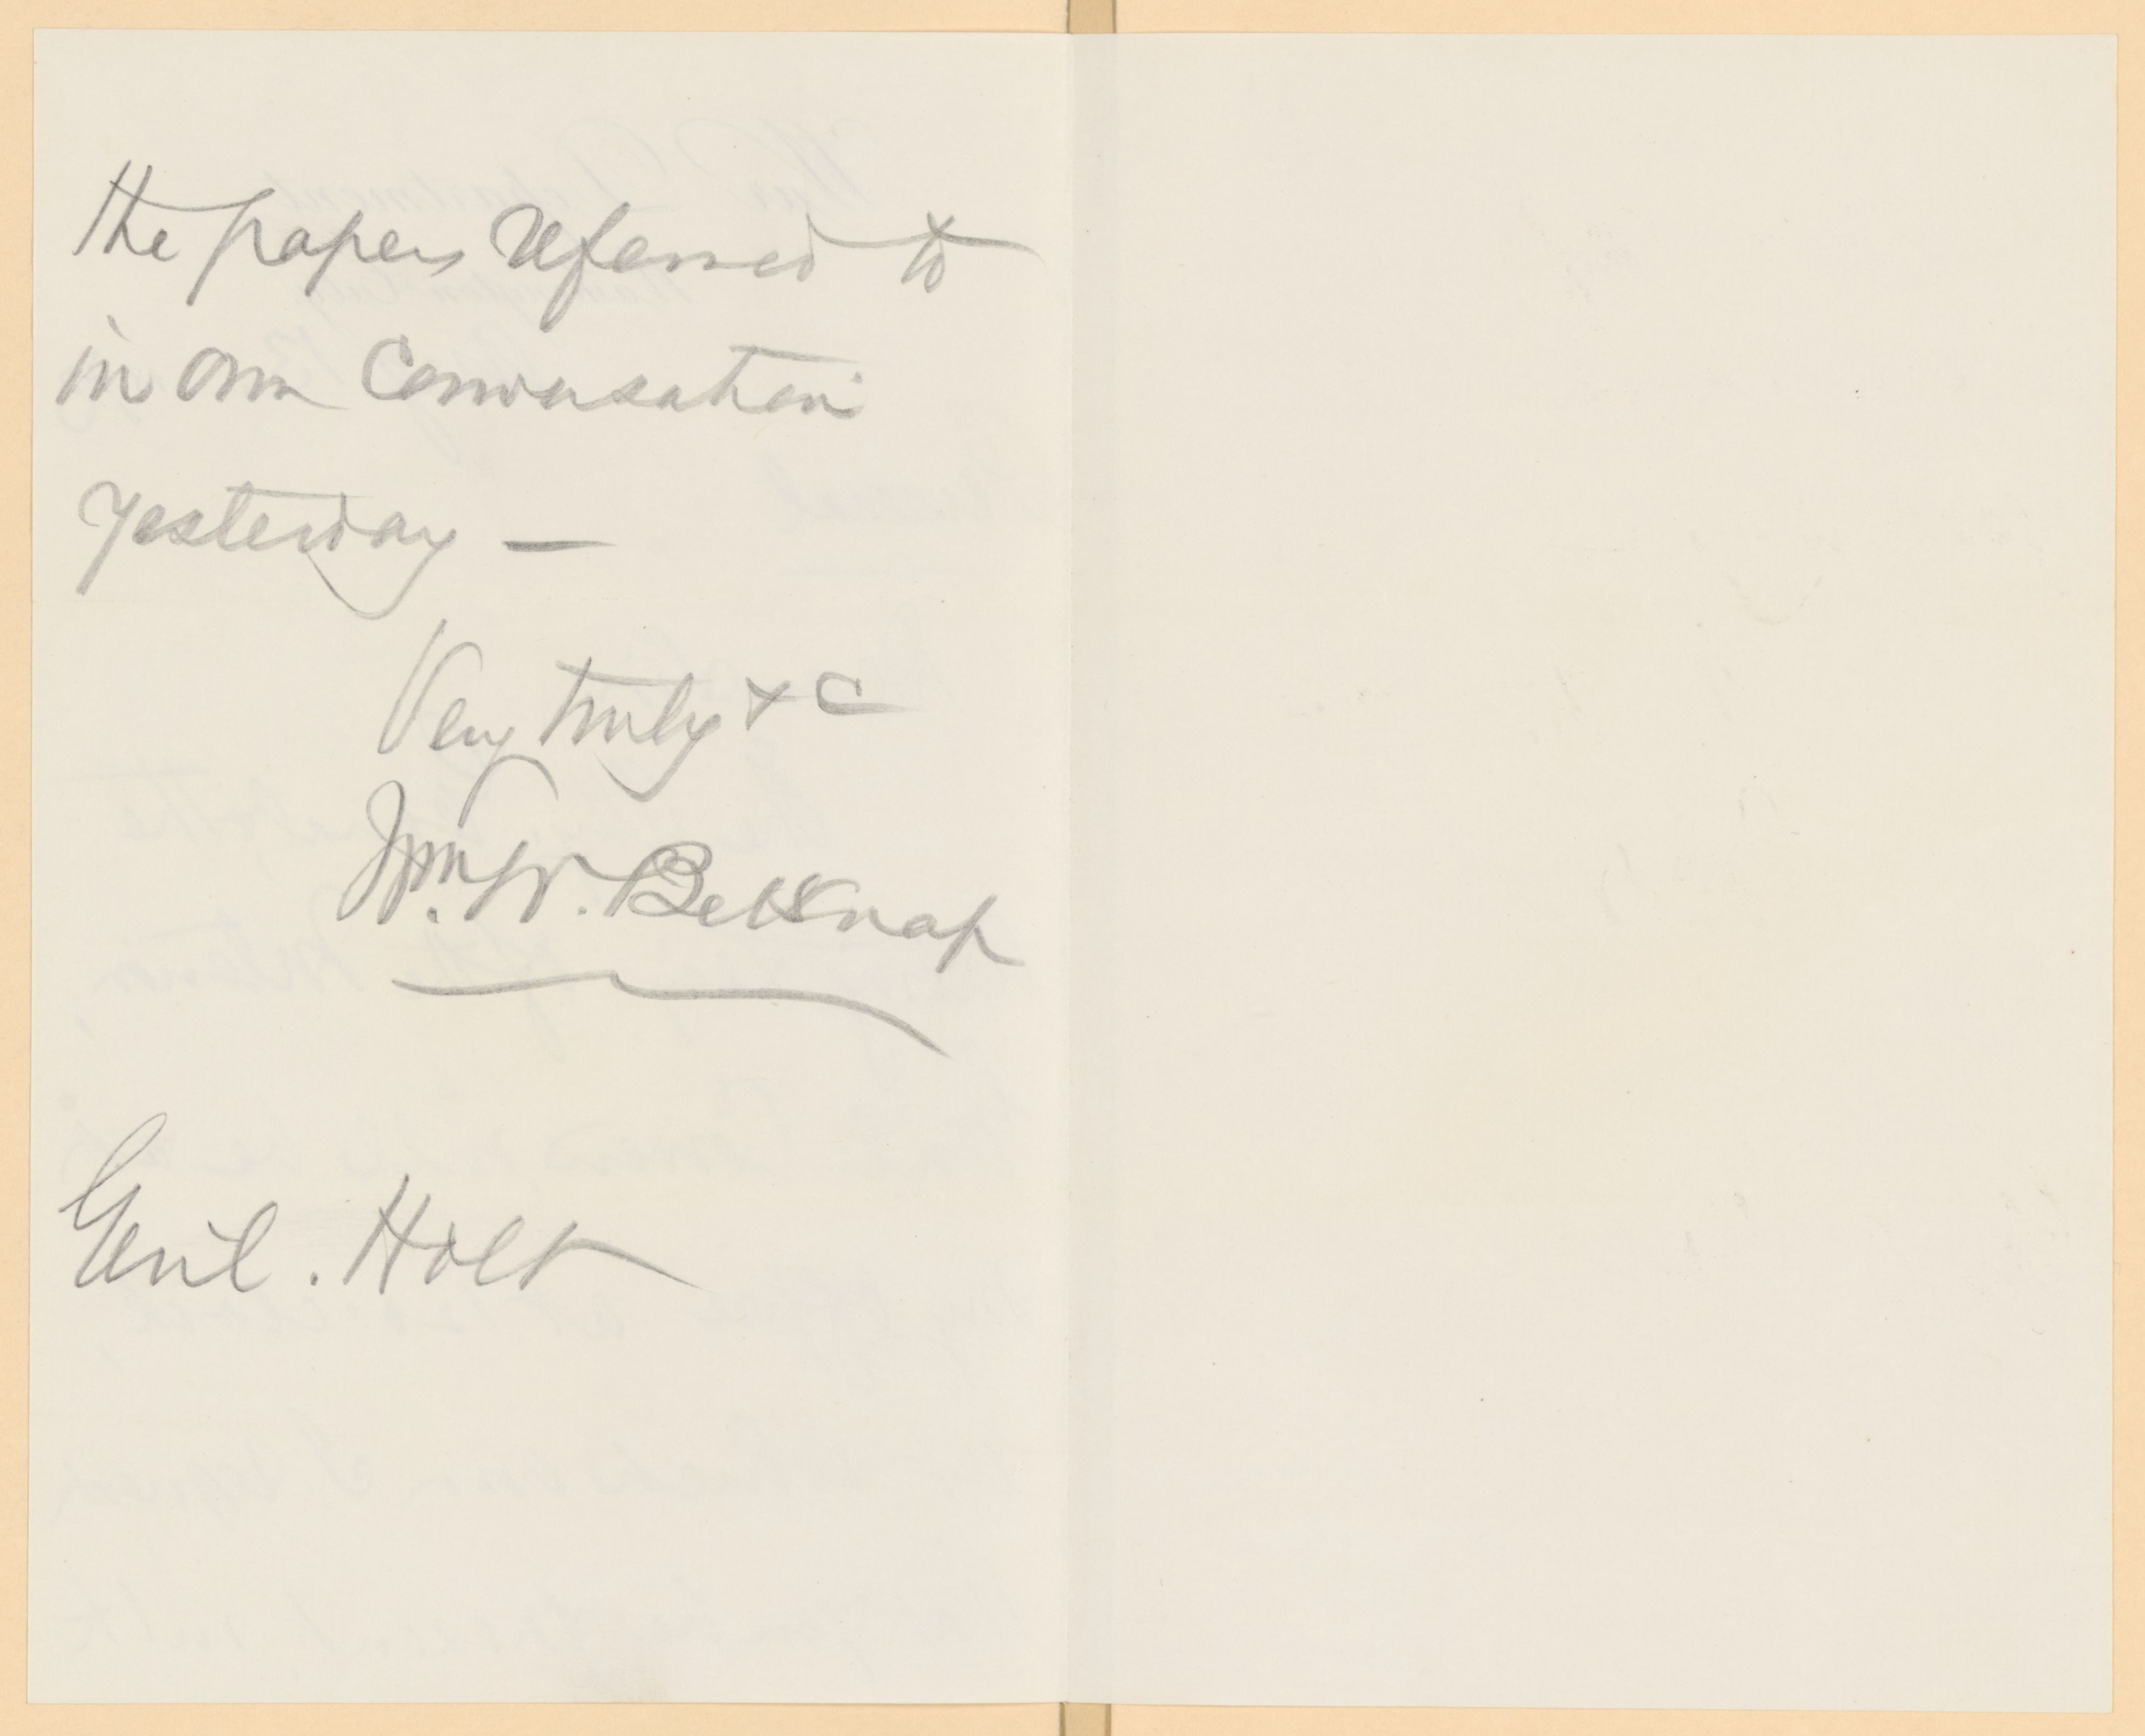 the papers referred to
in our Conversation
yesterday —
Very truly &c
Wm. W. Belknap
Genl. Holt